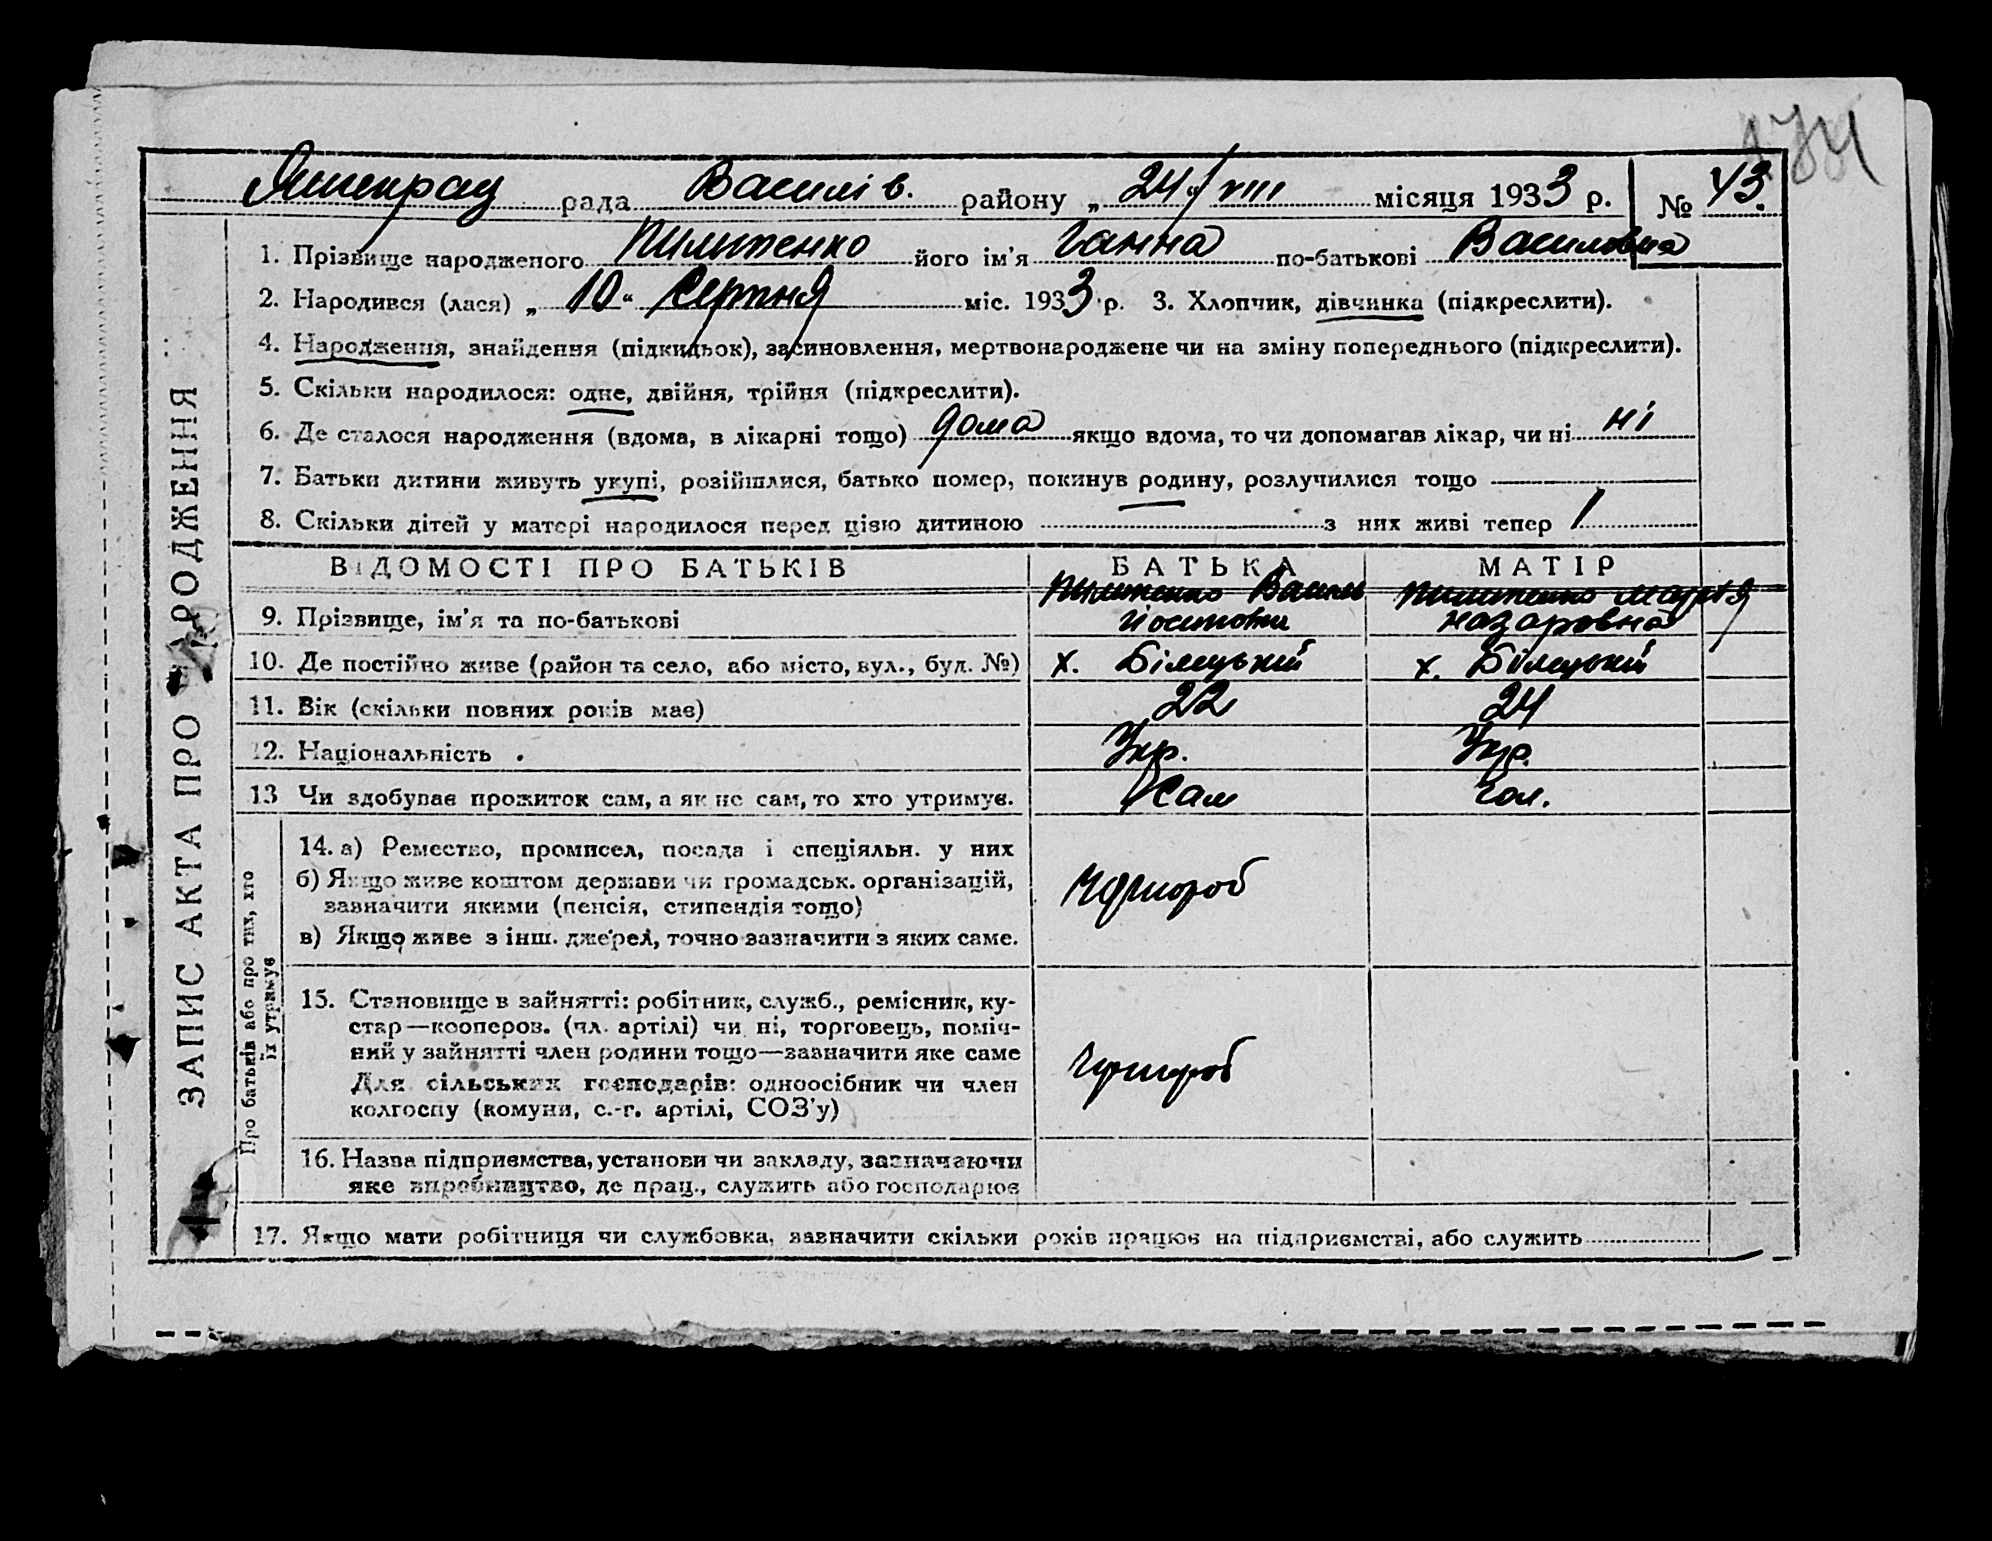 рада Василів. району „ 24/VIII місяця 1933 р. № 43.
1. Прізвище народженого Пилипенко його ім'я Ганна по-батькові Василовна
2. Народився (лася) „ 10 “ Серпня міс. 1933 р. 3. Хлопчик, дівчинка (підкреслити).
4. Народження, знайдення (підкидьок), засиновлення, мертвонароджене чи на зміну попереднього (підкреслити).
5. Скільки народилося: одне, двійня, трійня (підкреслити).
6. Де сталося народження (вдома, в лікарні тощо) дома якщо вдома, то чи допомагав лікар, чи ні ні
7. Батьки дитини живуть укупі, розійшлися, батько помер, покинув родину, розлучилися тощо
8. Скільки дітей у матері народилося перед цією дитиною з них живі тепер 1
ЗАПИС АКТА ПРО НАРОДЖЕННЯ
ВІДОМОСТІ ПРО БАТЬКІВ БАТЬКА МАТІР
9. Прізвище, ім'я та по-батькові Пилипенко Василь Пилипенко Марія
Назаровна
10. Де постійно живе (район та село, або місто, вул., буд. №) х. Білецький х. Білецький
11. Вік (скільки повних років має) 22 24
12. Національність Укр. Укр.
13 Чи здобуває прожиток сам, а як не сам, то хто утримує. Сам чол.
Про батьків або про тих, хто
їх утримує
14. а) Ремество, промисел, посада і спеціяльн. у них
б) Якщо живе коштом держави чи громадськ. організацій,
зазначити якими (пенсія, стипендія тощо)
в) Якщо живе з інш. джерел, точно зазначити з яких саме.
15. Становище в зайнятті: робітник, служб., ремісник, ку-
стар—кооперов. (чл. артілі) чи ні, торговець, поміч-
ний у зайнятті член родини тощо—зазначити яке саме
Для сільських господарів: одноосібник чи член
колгоспу (комуни, с.-г. артілі, СОЗ'у)
16. Назва підприємства, установи чи закладу, зазначаючи
яке виробництво, де прац., служить або господарює
17. Якщо мати робітниця чи службовка, зазначити скільки років працює на підприємстві, або служить